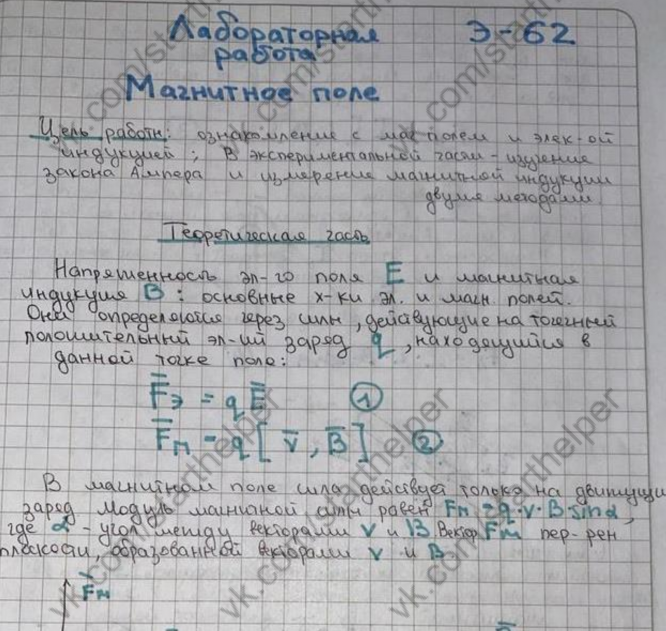 Лабораторная Э-62
работа
Магнитное поле
Цель работы: ознакомление с маг полем и элек-ой
индукцией; в экспериментальной части - изучение
закона Ампера и измерение магнитной индукции
двумя методами
Теоретическая часть
Напряженность эл-го поля E и магнитная
индукция B: основные х-ки эл. и магн полей.
Они определяются через силы, действующие на точечный
положительный эл-ий заряд q, находящийся в
данной точке поле:
F̅э = q E̅ ①
F̅м = q [ v̅, B̅ ] ②
В магнитном поле сила действует только на движущи
заряд Модуль магнитной силы равен Fm = q·v·B·sinα,
где α - угол между векторами v и B Вектор Fm пер-рен
плоскости, образованной векторами v и B
F̅м
vk.com/starthelper
vk.com/starthelper
vk.com/starthelper
vk.com/starthelper